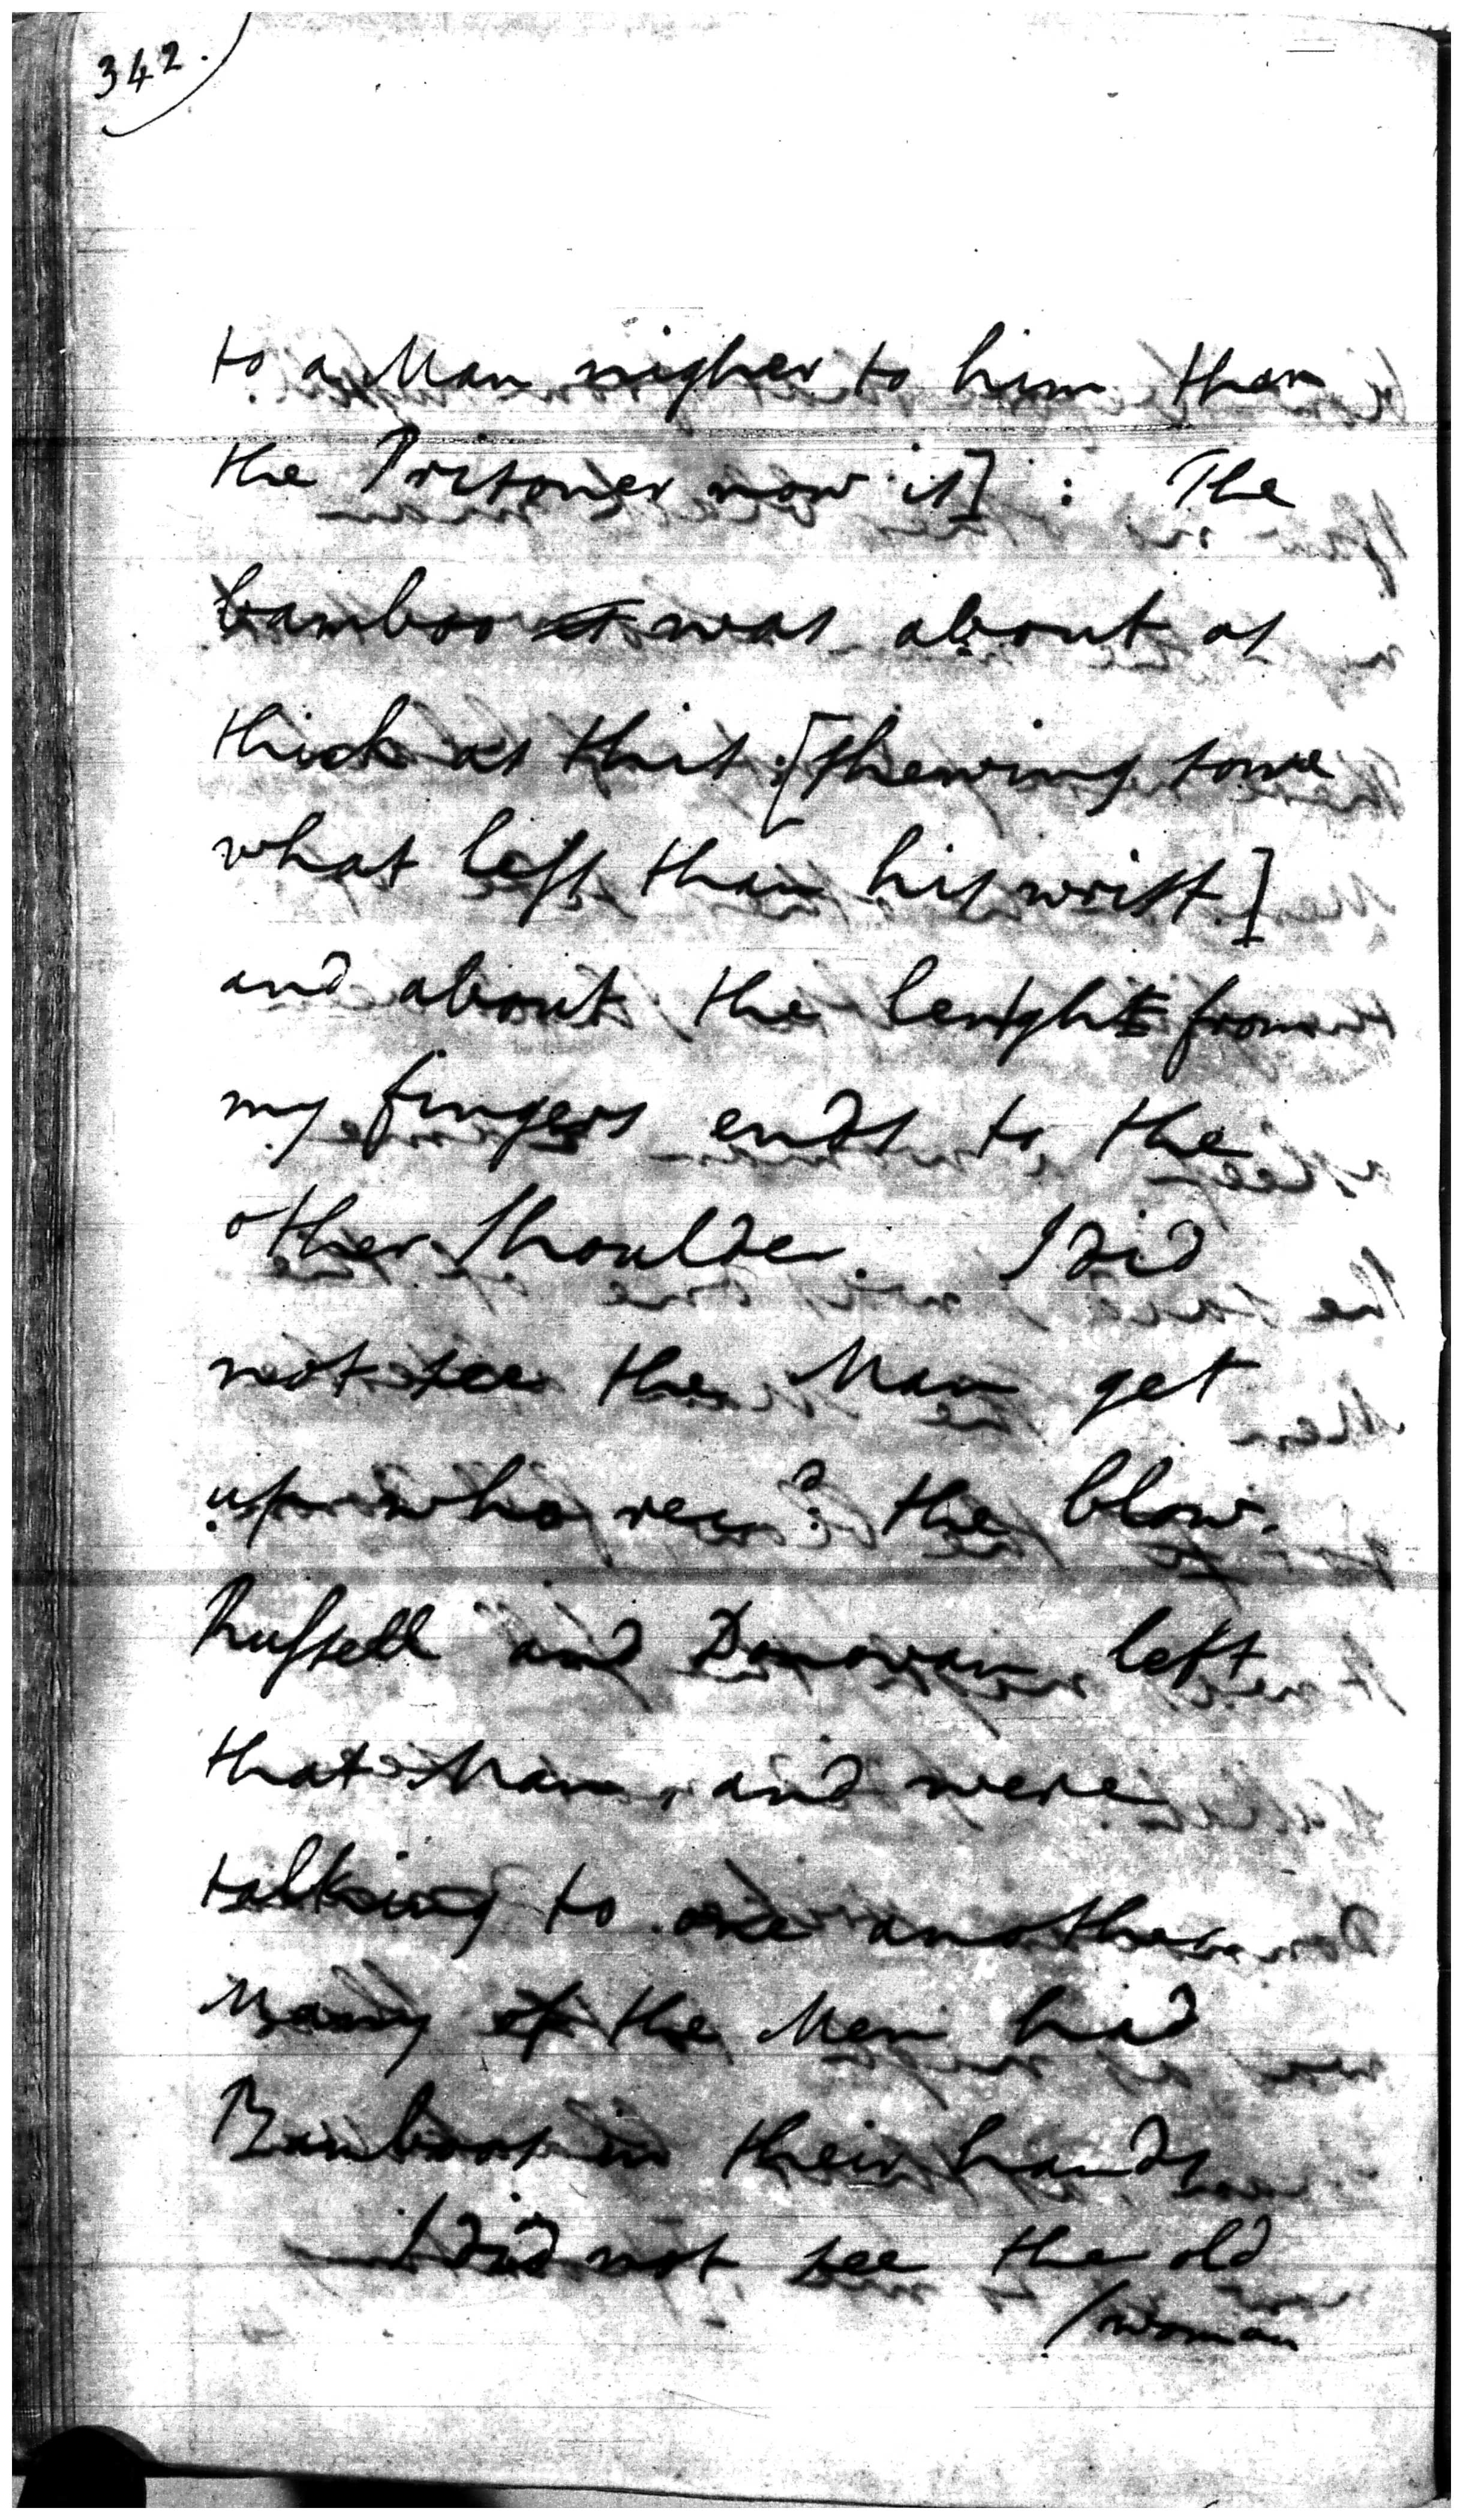 342.
to a Man nigher to him than
the Prisoner now is] : The
bamboo was about as
thick as this [shewing some
what less than his wrist]
and about the lenght from
my fingers ends to the
other shoulder. I did
not see the Man get
up who recd. the blow.
Russell and Donovan left
that Man, and were
talking to one another
Many of the Men had
Bamboos in their hands
I did not see the old
/woman